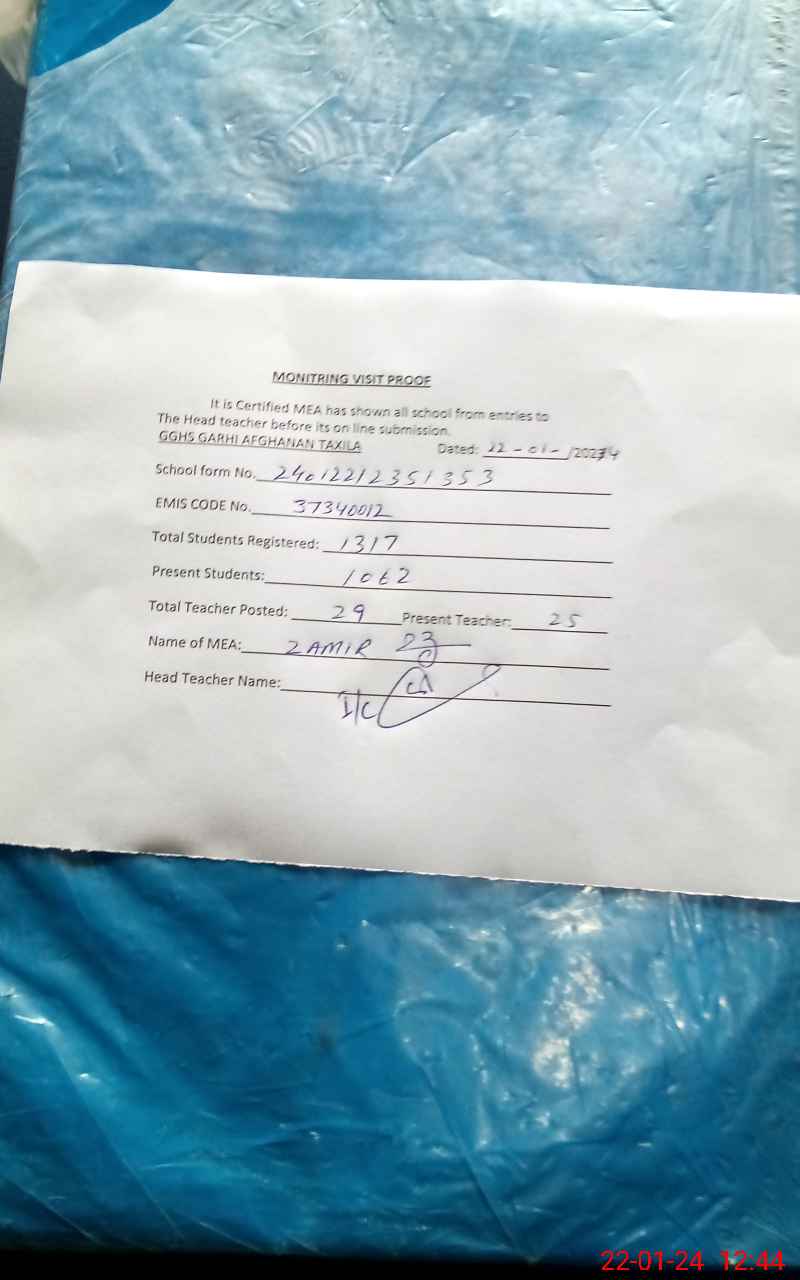 MONITRING VISIT PROOF
It is Certified MEA has shown all school from entries to
The Head teacher before its on line submission.
GGHS GARHI AFGHANAN TAXILA Dated: 22-01-/2024
School form No. 24012212351353
EMIS CODE No. 37340012
Total Students Registered: 1317
Present Students: 1062
Total Teacher Posted: 29 Present Teacher: 25
Name of MEA: ZAMIR
Head Teacher Name:
I/C
22-01-24 12:44